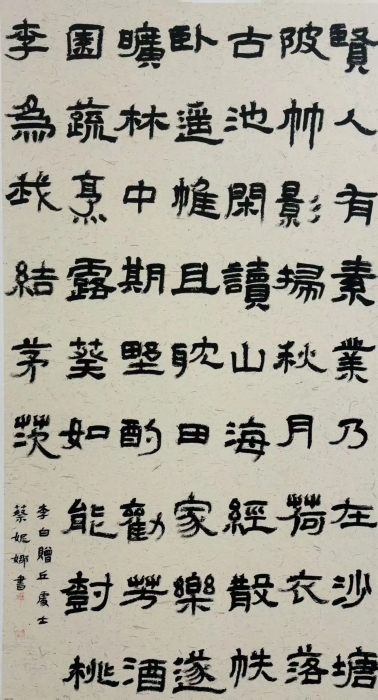 賢人有素業乃在沙塘
陂竹影掃秋月荷衣落
古池閑讀山海經散帙
卧遥帷且耽田家樂遂
曠林中期野酌勸芳酒
園蔬烹露葵如能樹桃
李為我結茅茨
李白贈丘處士
蔡妮娜書